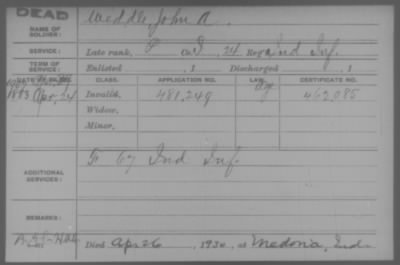 DEAD
NAME OF SOLDIER: Weddle, John A.
SERVICE: Late rank, P Co. 24 Reg't Ind Inf.
TERM OF SERVICE: Enlisted , 1 Discharged , 1
DATE OF FILING. CLASS. APPLICATION NO. LAW. CERTIFICATE NO.
1883 Apr, 24 Invalid, 481,249 462,085
Widow,
Minor,
ADDITIONAL SERVICES: F 67 Ind Inf.
REMARKS:
Died Apr 26, 1930, at Medora, Ind